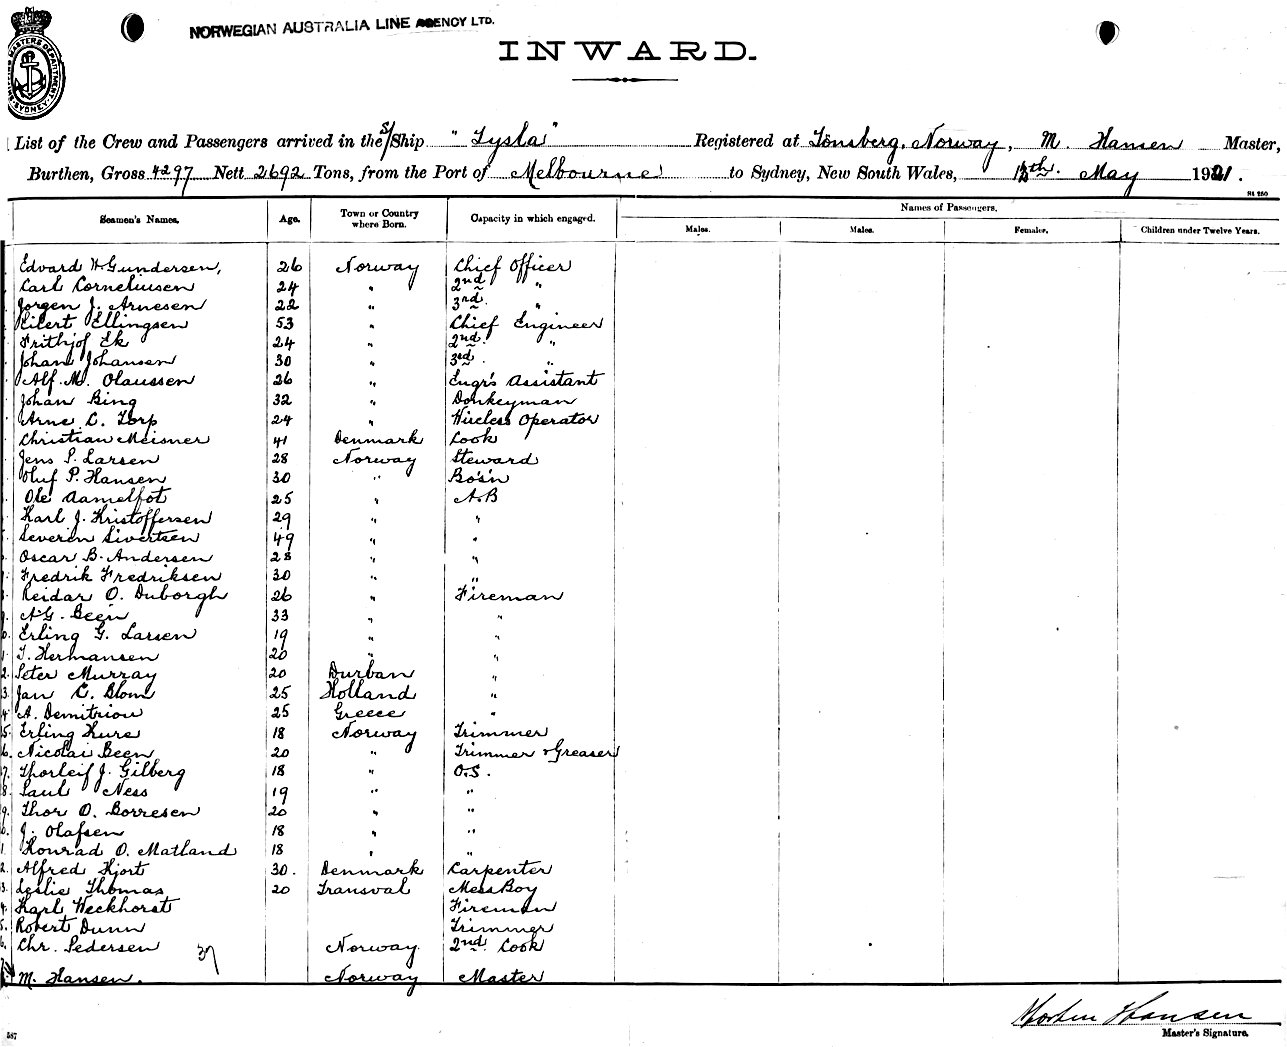 NORWEGIAN AUSTRALIA LINE AGENCY LTD.
INWARD.
List of the Crew and Passengers arrived in the S/Ship "Tysla" Registered at Tönsberg, Norway, M. Hansen Master,
Burthen, Gross 4297 Nett 2692 Tons, from the Port of Melbourne to Sydney, New South Wales, 13th. May 1921.
St 250
Seamen's Names. Age. Town or Country where Born. Capacity in which engaged. Names of Passengers.
Males. Males. Females. Children under Twelve Years.
Edvard H Gundersen, 26 Norway Chief Officer
Carl Corneliussen 24 " 2nd "
Jorgen J. Arnesen 22 " 3rd. "
Eilert Ellingsen 53 " Chief Engineer
Frithjof Ek 24 " 2nd "
Johan Johansen 30 " 3rd. "
Alf. M. Olaussen 26 " Engr's Assistant
Johan Bing 32 " Donkeyman
Arne C. Torp 24 " Wireless Operator
Christian Meisner 41 Denmark Cook
Jens P. Larsen 28 Norway Steward
Oluf P. Hansen 30 " Bo's'n
Ole Aamelfot 25 " A.B
Karl J. Kristoffersen 29 " "
Severin Sivertsen 49 " "
Oscar B. Andersen 28 " "
Fredrik Fredriksen 30 " "
Reidar O. Duborgh 26 " Fireman
A.G. Been 33 " "
Erling G. Larsen 19 " "
T. Hermansen 20 " "
2. Peter Murray 20 Durban "
3. Jan C. Blom 25 Holland "
4. A. Demitriou 25 Greece "
5. Erling Kure 18 Norway Trimmer
6. Nicolai Been 20 " Trimmer & Greaser
7. Thorleif J. Gilberg 18 " O.S.
8. Paul Ness 19 " "
9. Thor O. Borresen 20 " "
0. J. Olafsen 18 " "
1. Konrad O. Matland 18 " "
2. Alfred Hjort 30. Denmark Carpenter
3. Leslie Thomas 20 Transval Mess Boy
4. Karl Weckhorst Fireman
5. Robert Dunn Trimmer
6. Chr. Pedersen 37 Norway. 2nd Cook
M. Hansen. Norway Master
Morten Hansen
Master's Signature.
587